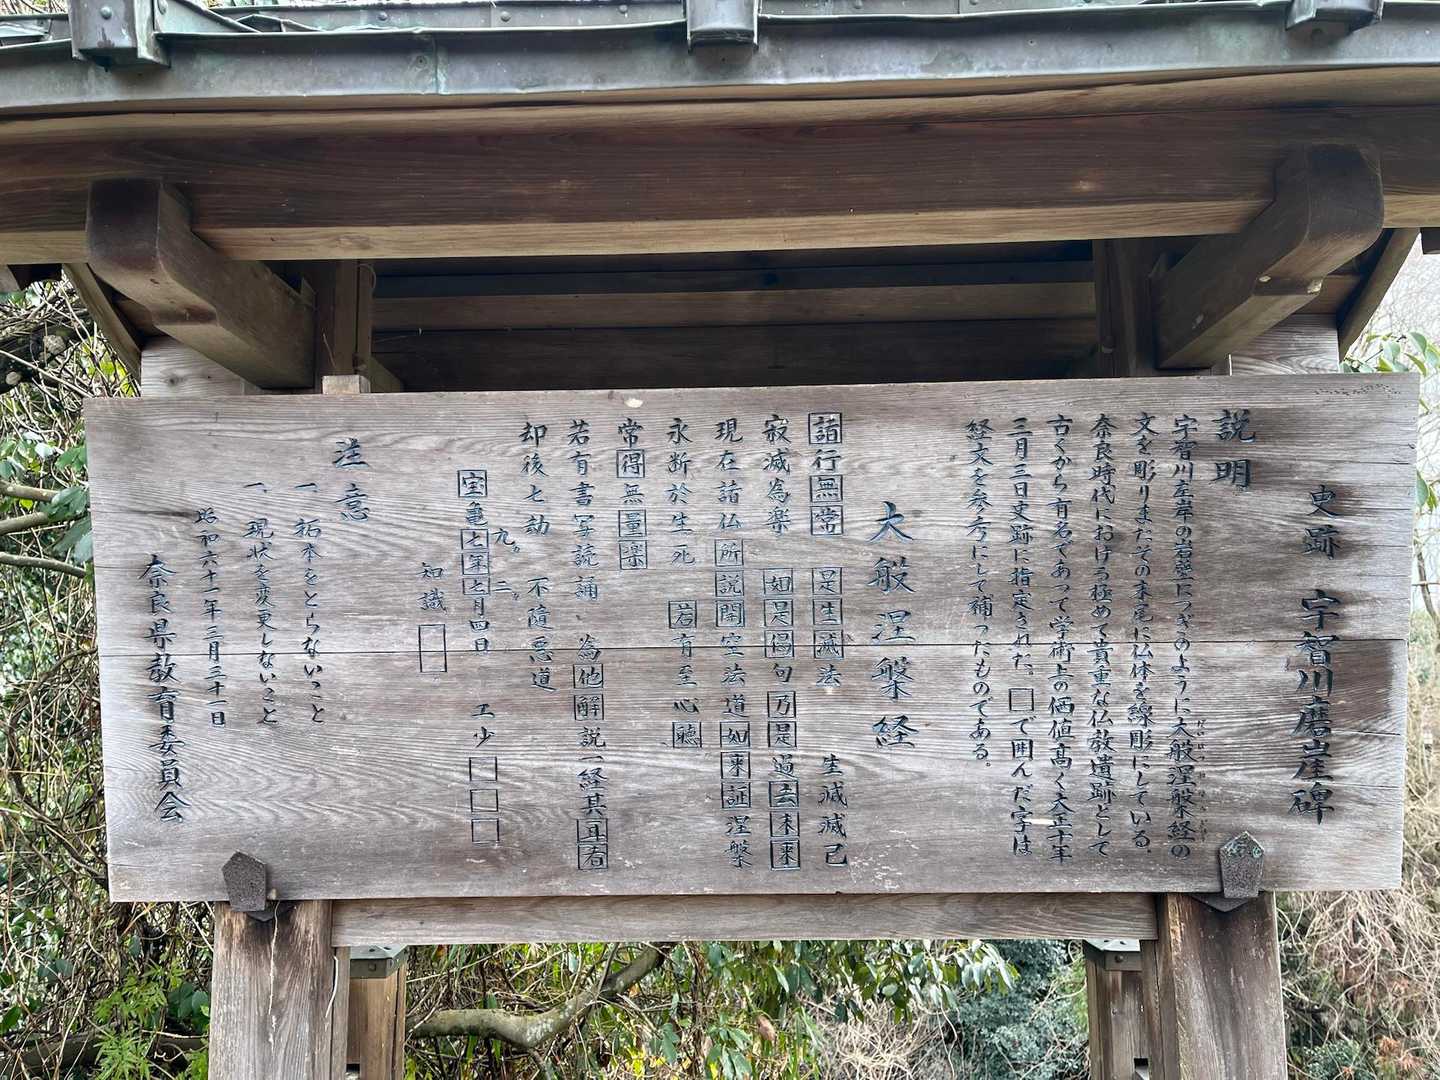 史跡 宇智川磨崖碑
説明
宇智川左岸の岩壁につぎのように大般涅槃経の
文を彫りまたその末尾に仏体を線彫にしている。
奈良時代における極めて貴重な仏教遺跡として
古くから有名であって学術上の価値高く大正十年
三月三日史跡に指定された。□で囲んだ字は
経文を参考にして補ったものである。
大般涅槃経
諸行無常 是生滅法 生滅滅已
寂滅為楽 如是偈句 乃是過去未来
現在諸仏 所説開空法道 如来証涅槃
永断於生死 若有至心聴
常得無量楽
若有書写読誦 為他解説 一経其耳者
却後七劫 不随悪道
九。 二。
宝亀七年七月四日 工少□□□
知識□
注意
一、拓本をとらないこと
一、現状を変更しないこと
昭和六十一年三月三十一日
奈良県教育委員会